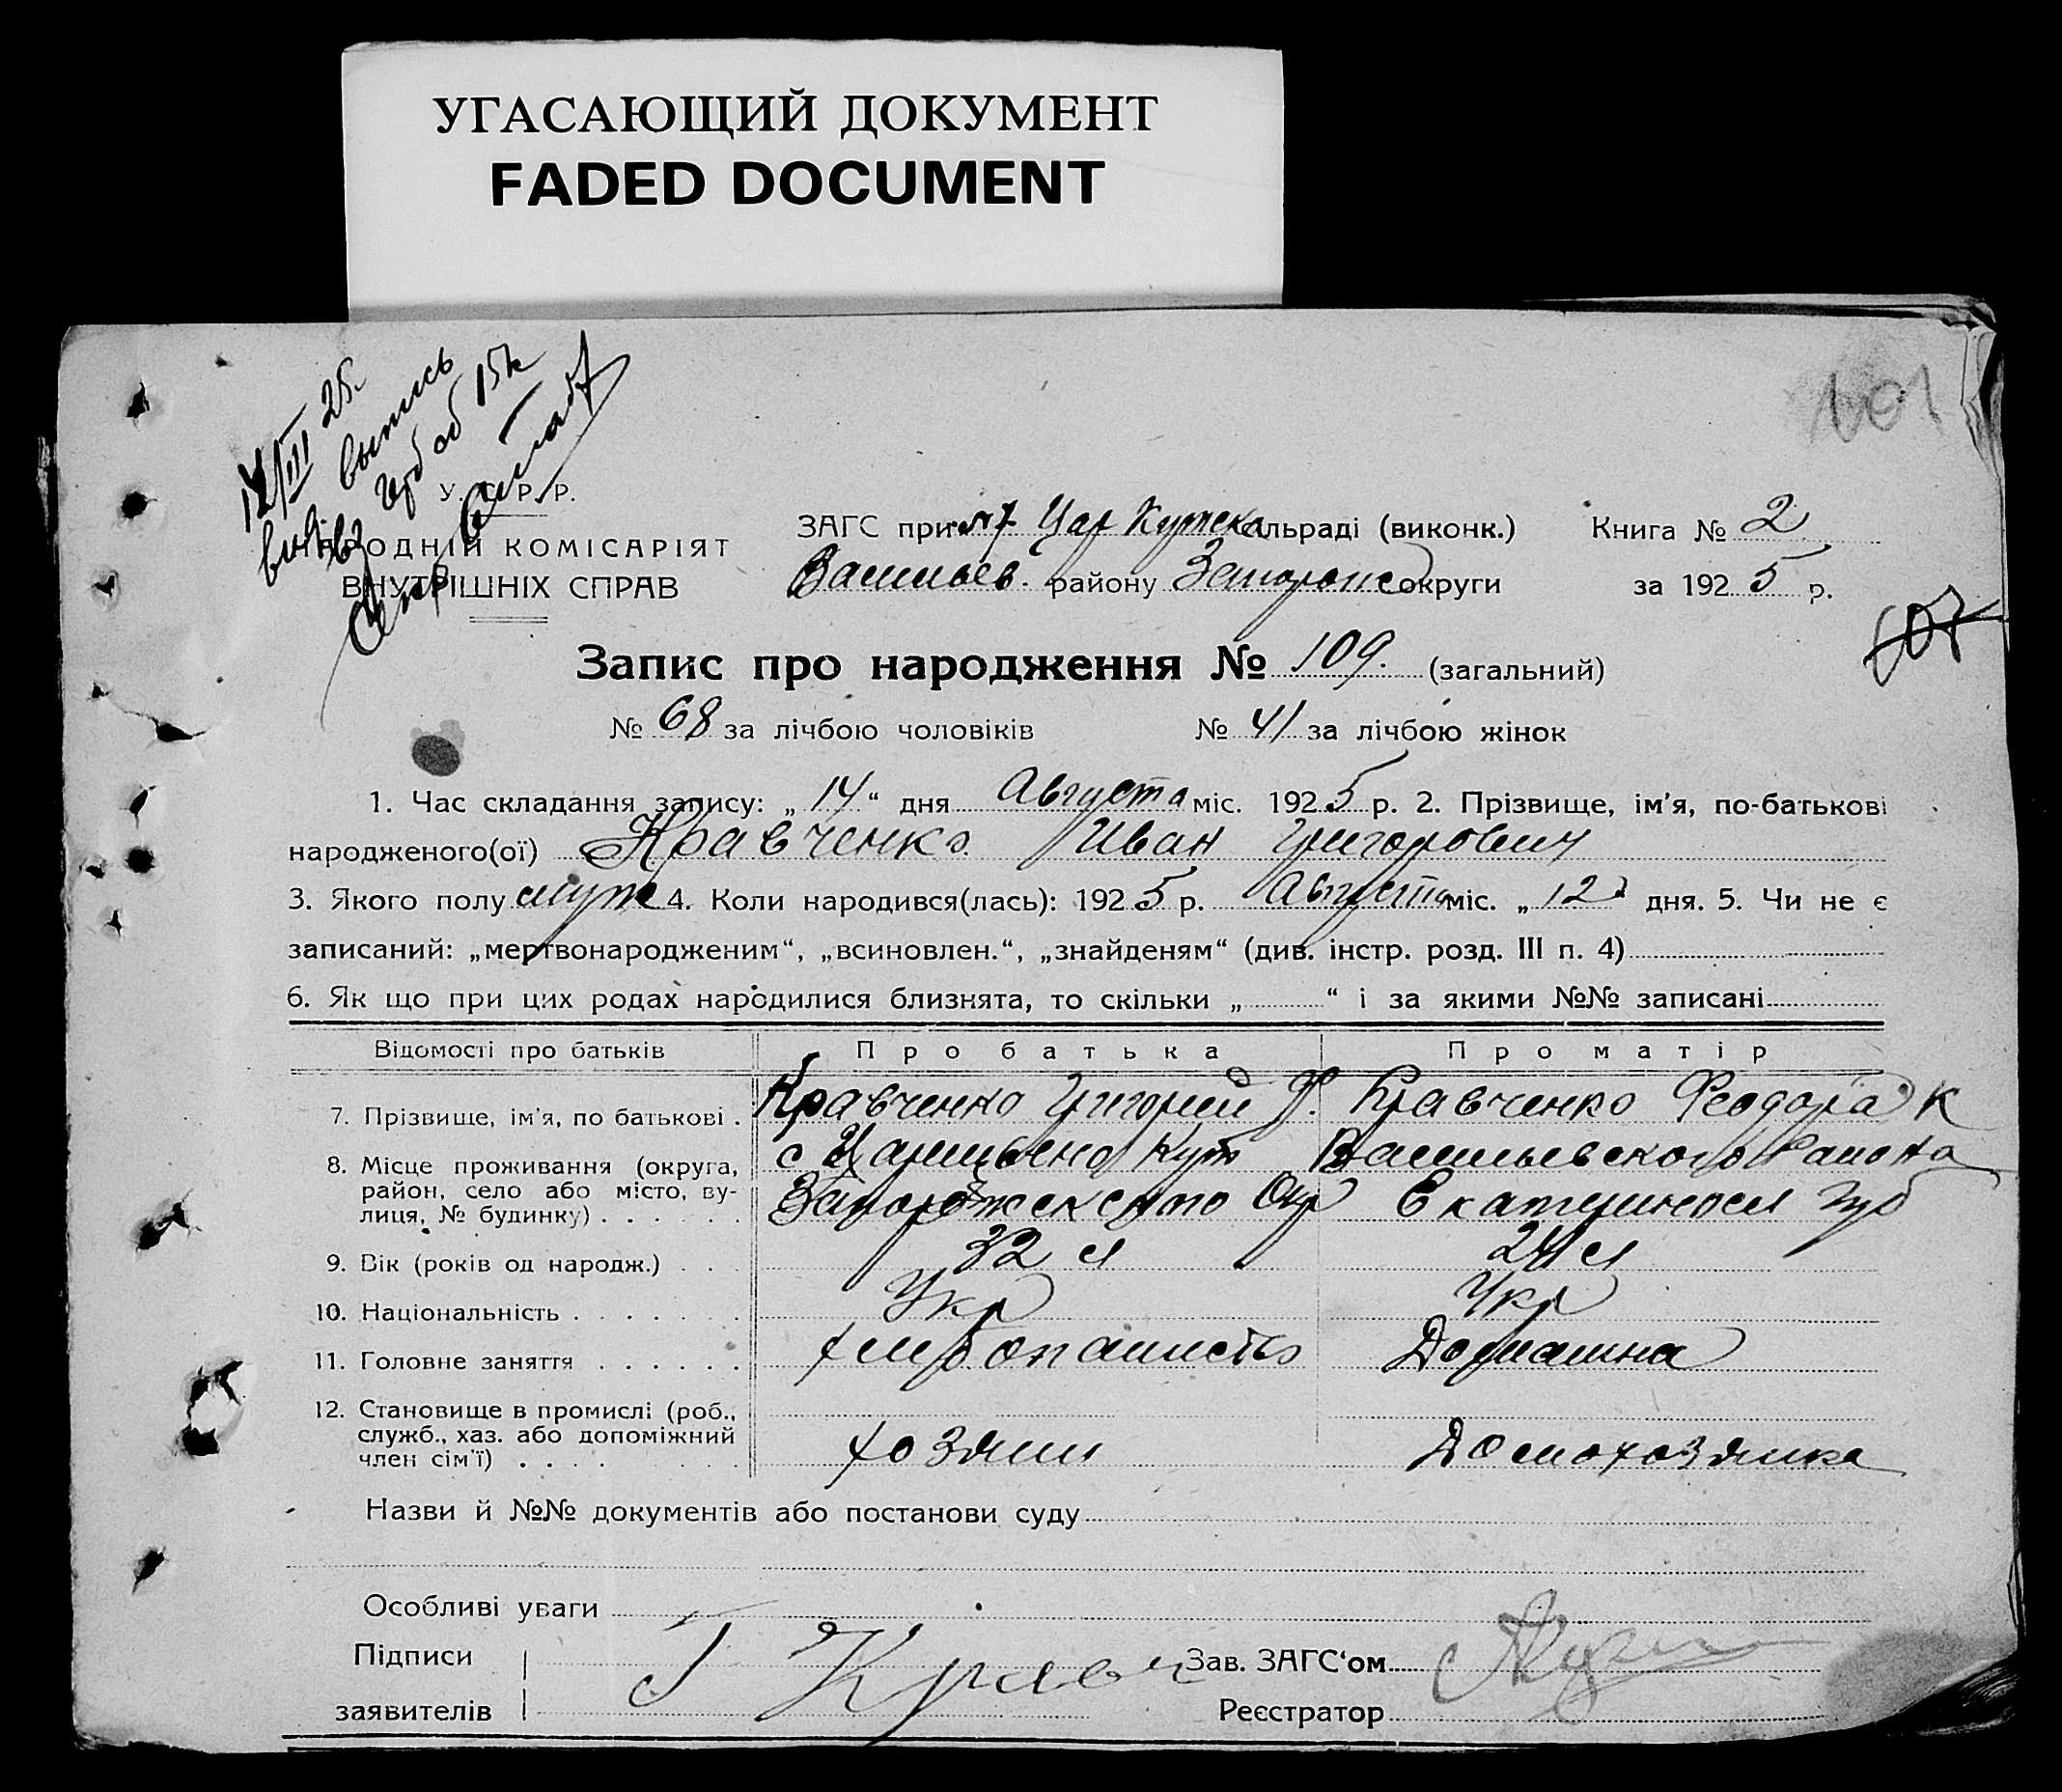 УГАСАЮЩИЙ ДОКУМЕНТ
FADED DOCUMENT
101
12/III 25.
выпись
15к
У. С. Р. Р.
НАРОДНІЙ КОМІСАРІЯТ
ВНУТРІШНІХ СПРАВ
ЗАГС при Цар Кутск сільраді (виконк.) Книга № 2
Васильев. району Запорож округи за 1925 р.
107
Запис про народження № 109. (загальний)
№ 68 за лічбою чоловіків № 41 за лічбою жінок
1. Час складання запису: „14“ дня Августа міс. 1925 р. 2. Прізвище, ім'я, по-батькові
народженого(ої) Кравченко Иван Григорович
3. Якого полу муж 4. Коли народився(лась): 1925 р. Августа міс. „12 дня. 5. Чи не є
записаний: „мертвонародженим“, „всиновлен.“, „знайденям“ (див. інстр. розд. III п. 4)
6. Як що при цих родах народилися близнята, то скільки „ “ і за якими №№ записані
Відомості про батьків Про батька Про матір
7. Прізвище, ім'я, по батькові . Кравченко Григорий Ф. Кравченко Феодора К
8. Місце проживання (округа, с Царицыно Кут Васильевского Района
район, село або місто, ву-
лиця, № будинку) Запорожского Окр Екатериносл губ
9. Вік (років од народж.) 32 л 24 л
10. Національність Укр Укр
11. Головне заняття хлебопашество Домашна
12. Становище в промислі (роб.,
служб., хаз. або допоміжний
член сім'ї) хозяин Домохозяика
Назви й №№ документів або постанови суду
Особливі уваги
Підписи Г Кравч Зав. ЗАГС'ом
заявителів Реєстратор